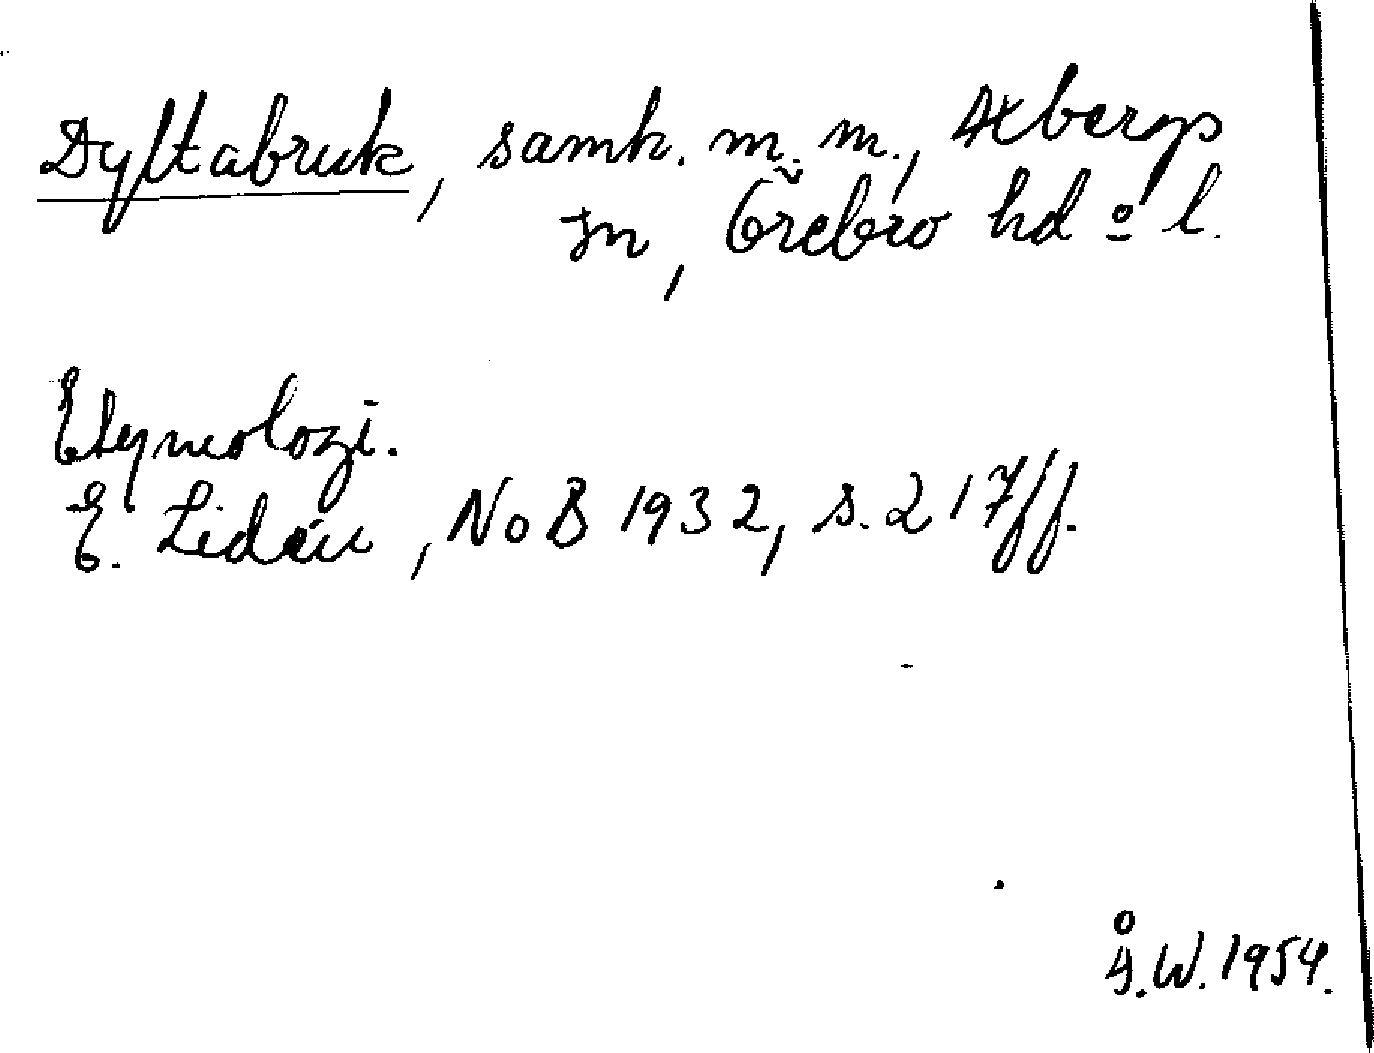 Dyltabruk, samh. m. m., Axbergs
sn, Örebro hd o l.
Etymologi.
E. Lidén, NoB 1932, s. 217ff.
Å.W. 1954.